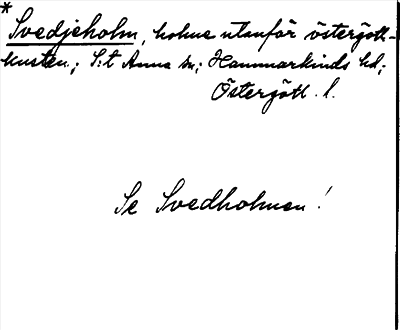 *
Svedjeholm, holme utanför östergötl-
kusten; S:t Anna sn; Hammarkinds hd;
Östergötl. l.
Se Svedholmen!